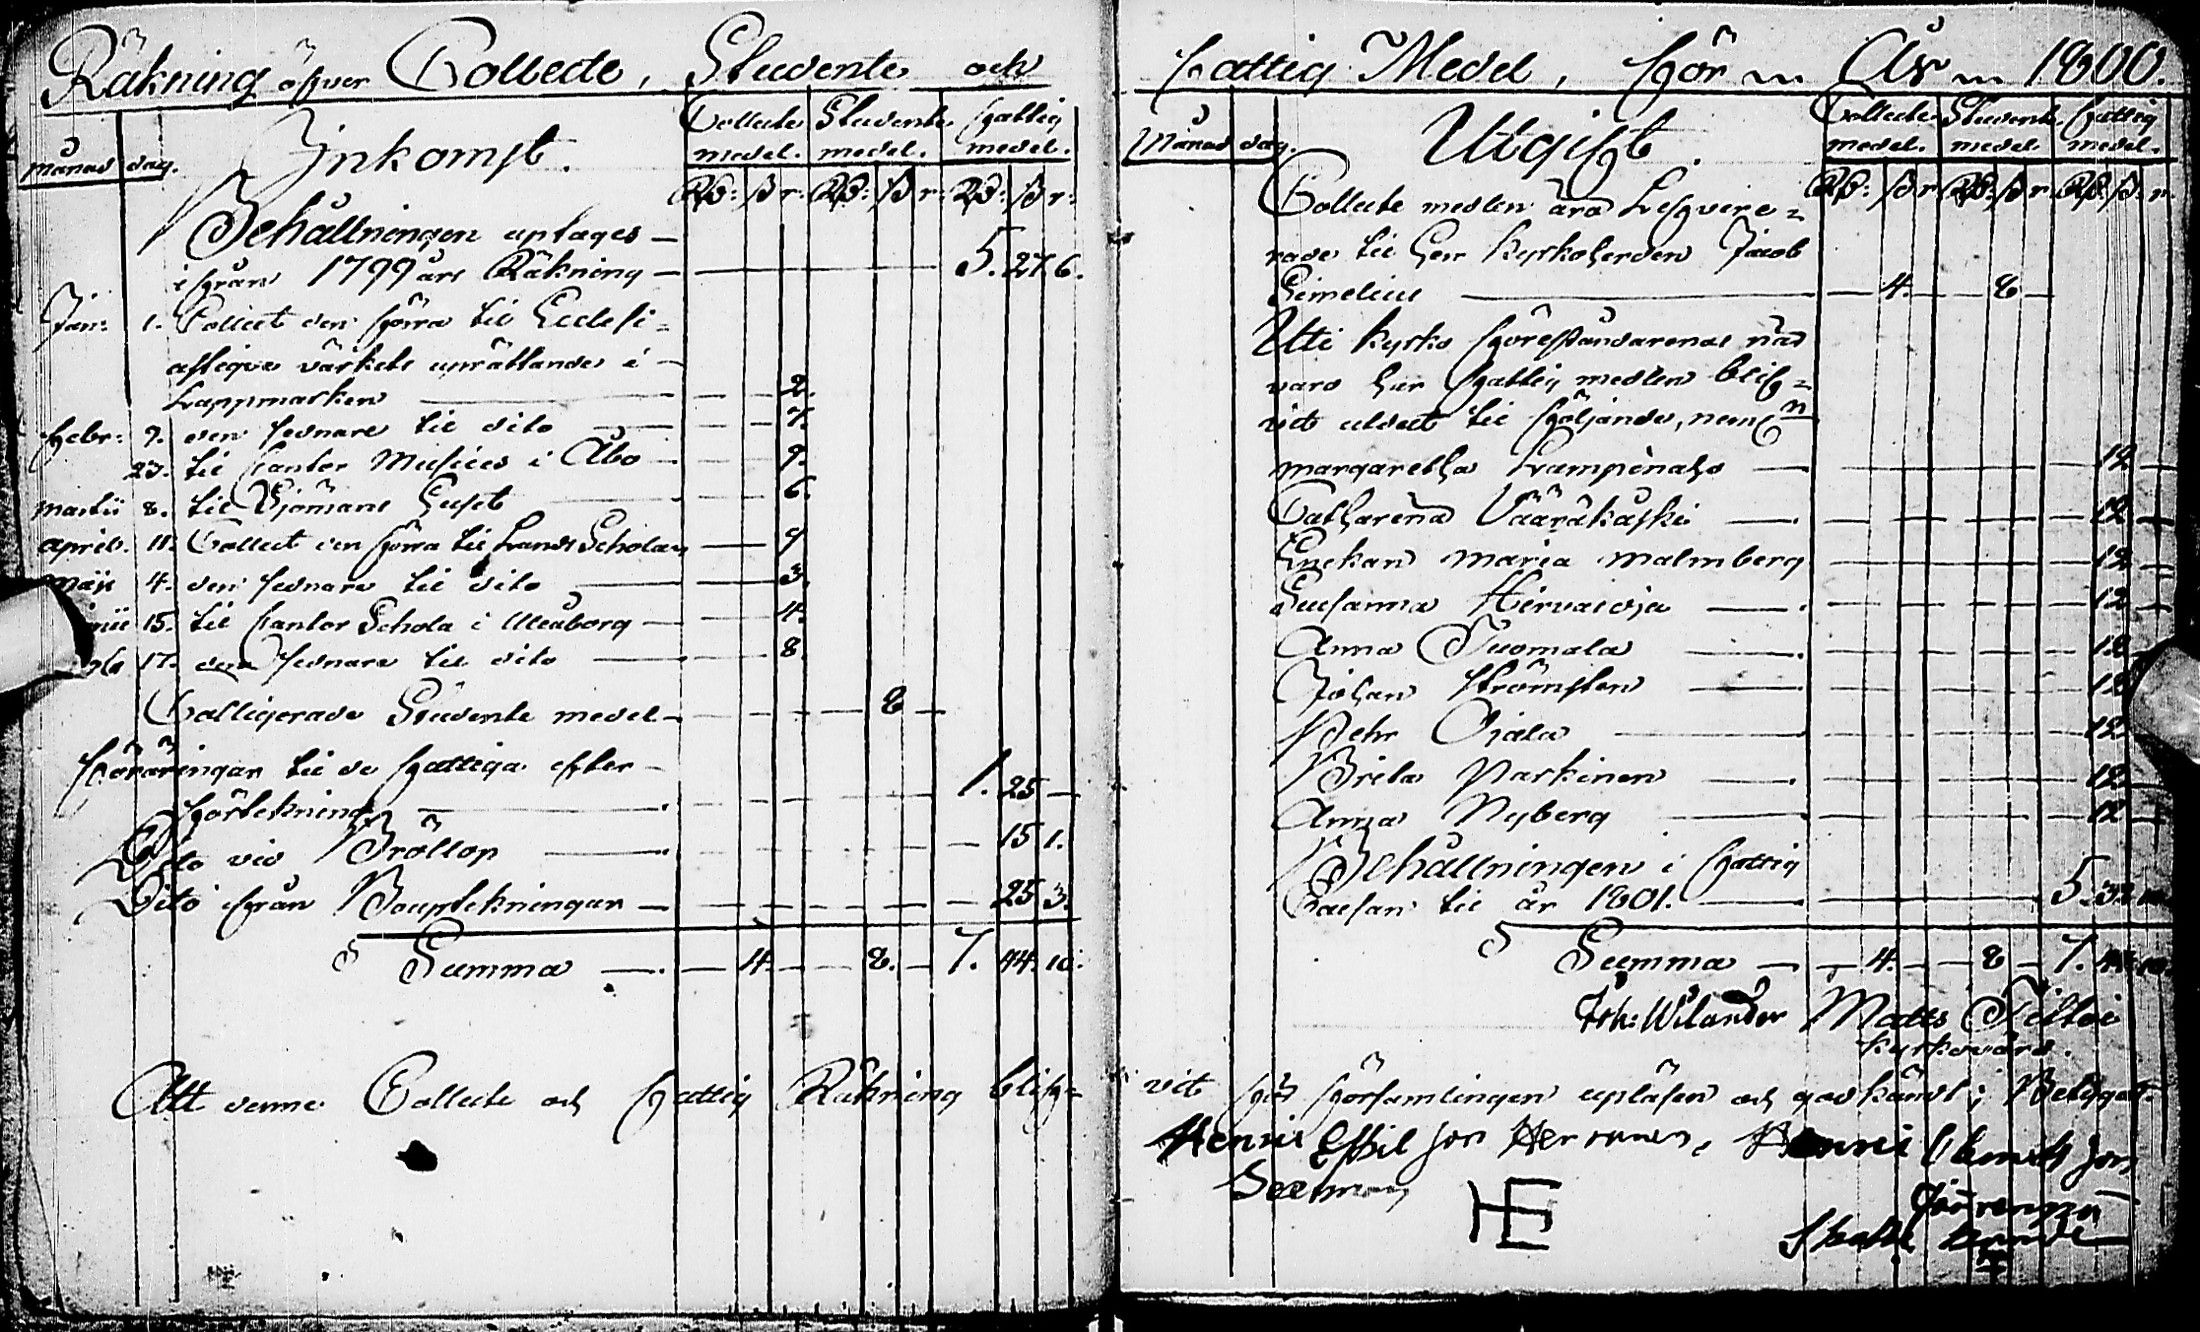 Räkning öfver Collecte, Studente och
månad dag. Inkomst. Collecte medel. Studente medel. Fattig medel.
Rd: ß r. Rd: ß r. Rd: ß r.
Behållningen uptages
ifrån 1799 års Räkning 5. 27. 6.
Jan: 1. Collect den förra til Ecclesi=
astique värkets uprättande i
Lappmarken 2.
Febr: 9. den sednare til dito 7.
23. til Cantor Musices i Åbo 9.
Martii 8. til Sjömans Huset 6.
April. 11. Collect den förra til Lands Scholan 9
Maji 4. den sednare til dito 3.
15. til Cantor Schola i Uleåborg 4.
17. den sednare til dito 8.
Colligerade Studente medel 8
Föräringar til de Fattiga efter
förtekning 1. 25
Dito vid Bröllop 15 1.
Dito ifrån Bouptekningar 25 3.
Summa 4. 8. 7. 44. 10.
Att denne Collecte och Fattig Räkning blif=
Fattig Medel, För År 1800.
Månad dag. Utgift. Collecte medel. Studente medel. Fattig medel.
Rd: ß r. Rd: ß r. Rd: ß r.
Collecte medlen äro Lefvere=
rade til Herr Kyrkoherden Jacob
Simelius 4. 8
Uti Kyrko Föreståndarenas när
varo har Fattig medlen blif=
vit utdelt til följande, neml:n
Margaretha Lampinaho 12
Catharina Vääräkoski 12
Enckan Maria Malmberg 12
Susanna Hirvaioja 12
Anna Tuomala 12
Johan Strömsten 12
Pehr Ojala 12
Brita Parkinen 12
Anna Nyberg 12
Behållningen i Fattig
Cassan til år 1801. 5. 32. 10
Summa 4. 8 7. 44. 10
Joh: Wilander Matts Tiltoi
Kyrkovärd.
vit för församlingen upläsen och godkänd; Betygat.
Henric Eskil son Hermanen, Henric son
HE